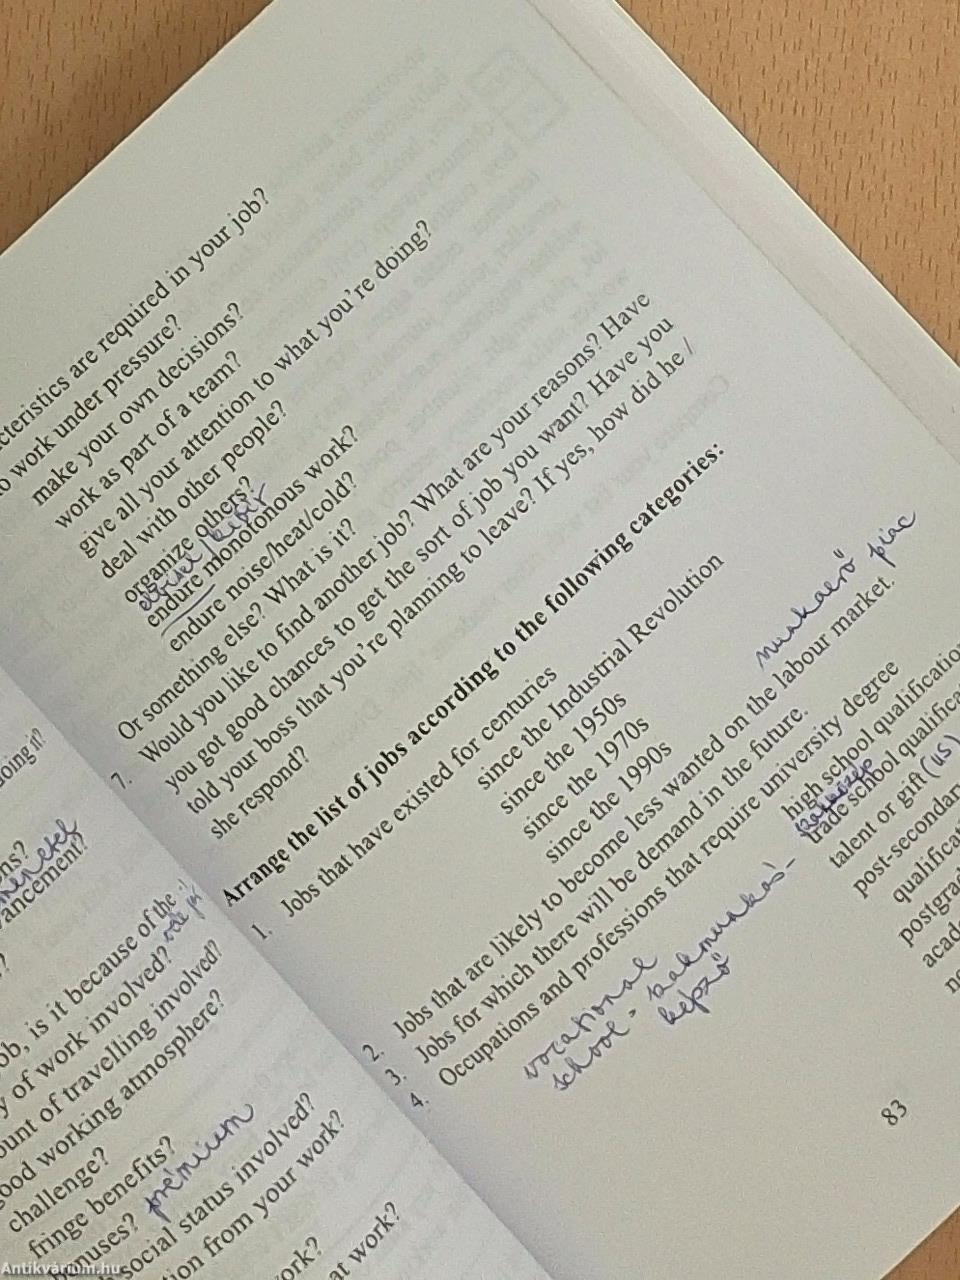 characteristics are required in your job?
to work under pressure?
make your own decisions?
work as part of a team?
give all your attention to what you're doing?
deal with other people?
organize others?
elvisel, kibír
endure monotonous work?
endure noise/heat/cold?
Or something else? What is it?
7. Would you like to find another job? What are your reasons? Have
you got good chances to get the sort of job you want? Have you
told your boss that you're planning to leave? If yes, how did he /
she respond?
Arrange the list of jobs according to the following categories:
1. Jobs that have existed for centuries
since the Industrial Revolution
since the 1950s
since the 1970s
since the 1990s
munkaerő piac
2. Jobs that are likely to become less wanted on the labour market.
3. Jobs for which there will be demand in the future.
4. Occupations and professions that require university degree
high school qualification
trade school qualifica
talent or gift (US)
post-secondary
qualificati
postgrad
acade
no
vocational
school = szakmunkás-
képző
83
oing it?
ons?
menetel
vancement?
?
ob, is it because of the
y of work involved?
ount of travelling involved?
good working atmosphere?
challenge?
fringe benefits?
bonuses? prémium
h social status involved?
tion from your work?
ork?
at work?
Antikvárium.hu